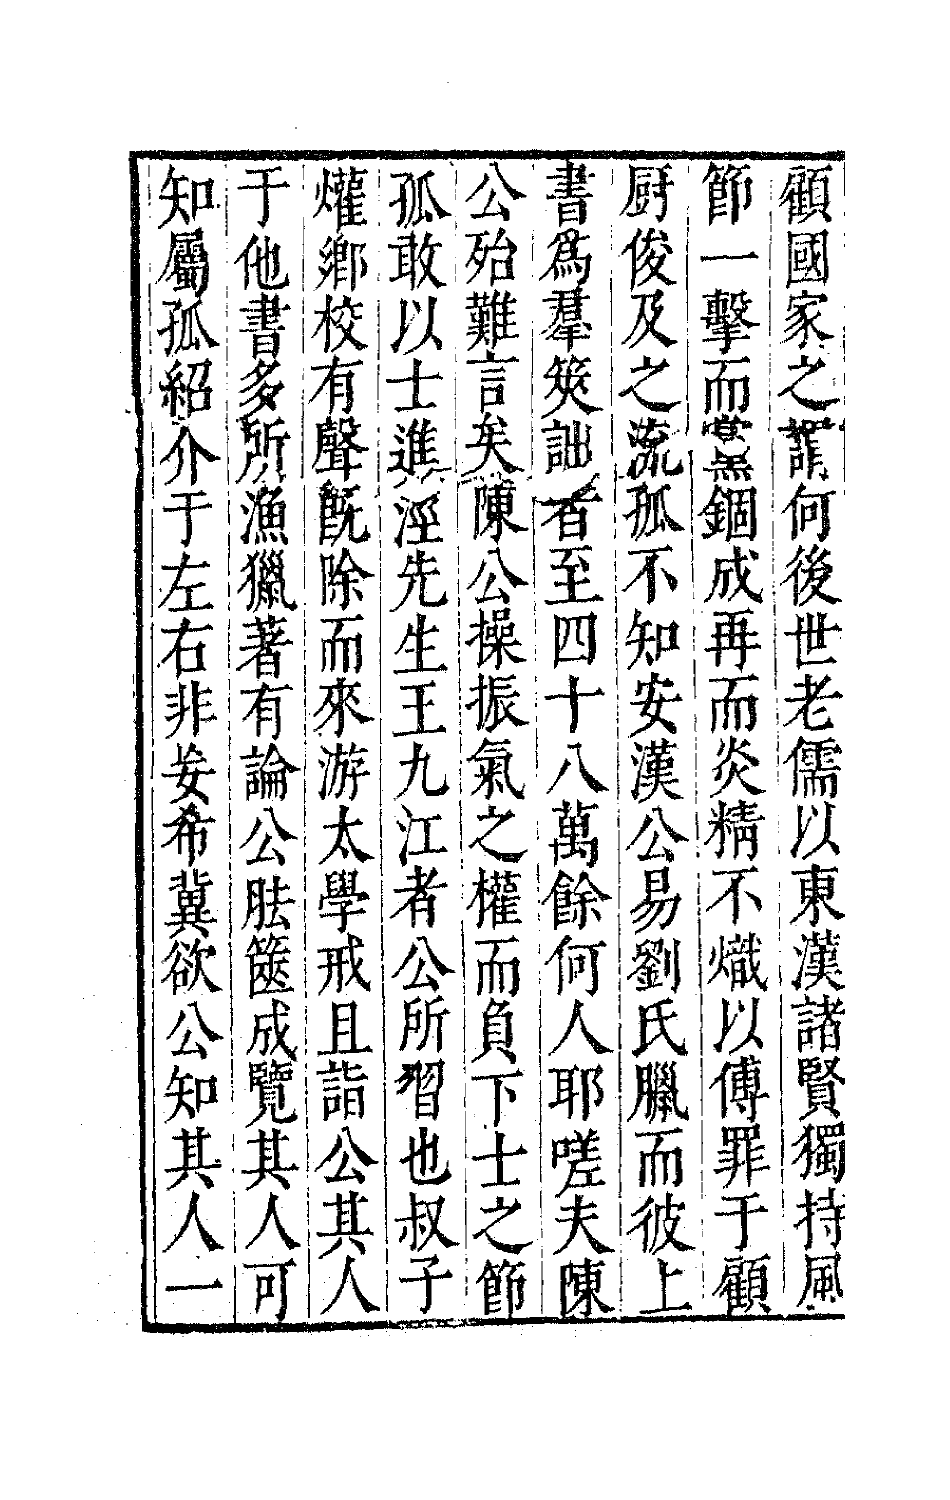 顧國家之謂何後世老儒以東漢諸賢獨持風
節一擊而黨錮成再而炎精不熾以傅罪于顧
厨俊及之流孤不知安漢公易劉氏臘而彼上
書爲羣筴詘者至四十八萬餘何人耶嗟夫陳
公殆難言矣陳公操振氣之權而負下士之節
孤敢以士進涇先生王九江者公所習也叔子
爟鄉校有聲旣除而來游太學戒且詣公其人
于他書多所漁獵著有論公胠篋成覽其人可
知屬孤紹介于左右非妄希冀欲公知其人一